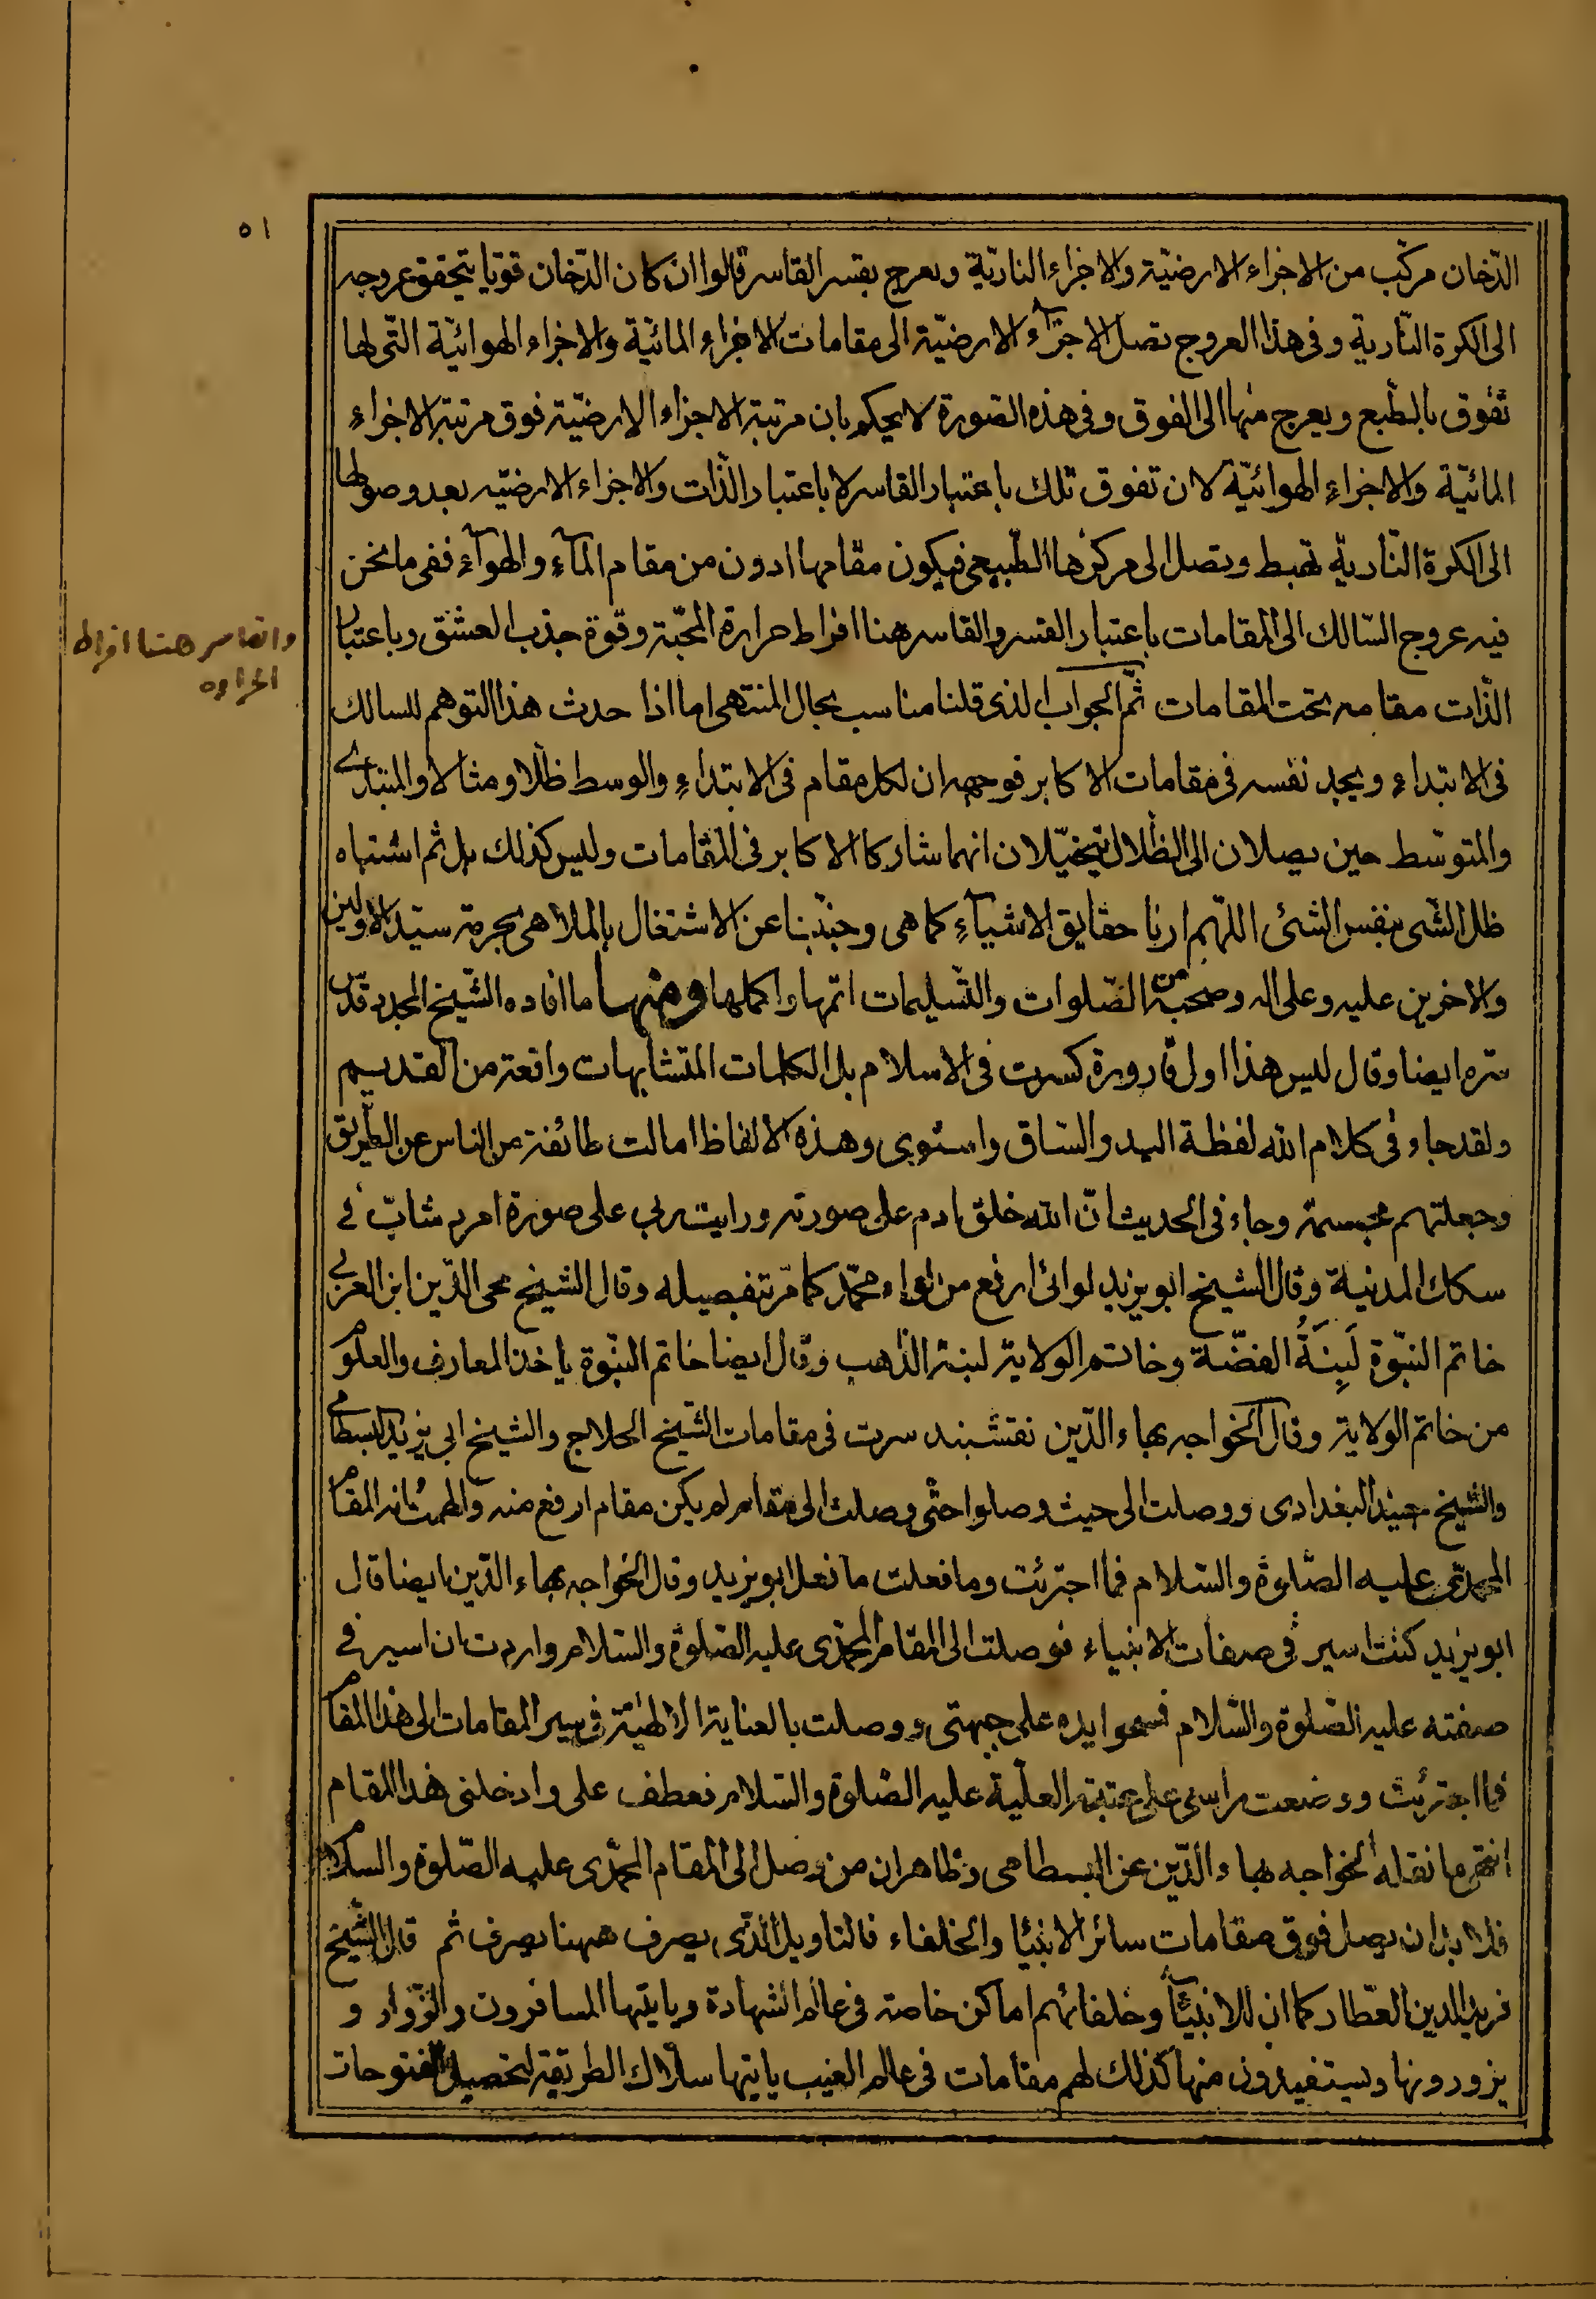 ٥١
الدّخان مركّب من الاجزاء الارضيّة والاجزاء الناريّة ويعرج بقسر القاسر قالوا ان كان الدّخان قويا يتحقق عروجه
الى الكرة النّارية وفى هذا العروج تصل الاجزآء الارضيّة الى مقامات الاجزاء المائيّة والاجزاء الهوائيّة التّى لها
تفوق بالطّبع ويعرج منها الى الفوق وفى هذه الصّورة لا يحكم بان مرتبة الاجزاء الارضيّة فوق مرتبة الاجزاء
المائيّة والاجزاء الهوائيّة لان تفوق تلك باعتبار القاسر لا باعتبار الذّات والاجزاء الارضيّه بعد وصولها
الى الكرة النّاريّة تهبط وتصل الى مركزها الطّبيعى فيكون مقامها ادون من مقام المآء والهوآء ففى ما نحن
فيه عروج السّالك الى المقامات باعتبار القسر والقاسر هنا افراط حرارة المحبّة وقوة جذب العشق وباعتبار
والقاسر هنا افراط
الحراره
الذّات مقامه تحت المقامات ثمّ الجواب الذى قلنا مناسب بحال المنتهى اما اذا حدث هذا التوهم للسالك
فى الابتداء ويجد نفسه فى مقامات الاكابر فوجهه ان لكل مقام فى الابتداء والوسط ظلّا ومثالا والمبتدى
والمتوسّط حين يصلان الى الظّلال يتخيّلان انهما شاركا الاكابر فى المقامات وليس كذلك بل ثم اشتباه
ظل الشّى بنفس الشئى اللّهم ارنا حقايق الاشيآء كما هى وجنّبنا عن الاشتغال بالملاهى بحرمة سيّد الاولين
والاخرين عليه وعلى اله وصحبه من الصّلوات والتّسليمات اتمّها واكملها ومنها ما افاده الشّيخ المجدد قدّس
سّره ايضا وقال ليس هذا اول قارورة كسرت فى الاسلام بل الكلمات المتشابهات واقعة من القديم
ولقد جاء فى كلام الله لفظة اليد والسّاق واستوى وهذه الالفاظ امالت طائفة من الناس عن الطّريق
وجعلتهم مجسمة وجاء فى الحديث انّ الله خلق ادم على صورته ورايت ربى على صورة امرد شابّ فى
سكك المدنية وقال الشيخ ابو يزيد لوائى ارفع من لواء محمّد كما مرّ بتفصيله وقال الشيخ محى الدّين ابن العربى
خاتم النبّوة لَبِنَةُ الفضّة وخاتم الولاية لبنة الذّهب وقال ايضا خاتم النبّوة ياخذ المعارف والعلوم
من خاتم الولاية وقال الخواجه بهاء الدّين نقشبند سرت فى مقامات الشّيخ الحلاج والشيخ ابى يزيد البسطامى
والشيخ جنيد البغدادى ووصلت الى حيث وصلوا حتّى وصلت الى مقام لم يكن مقام ارفع منه والهمت انه المقام
المحمدّى عليه الصّلوة والسّلام فما اجترئت وما فعلت ما فعل ابو يزيد وقال الخواجه بهاء الدّين ايضا قال
ابو يزيد كنت اسير فى صفات الانبياء فوصلت الى المقام المحمّدى عليه الصّلوة والسّلام واردت ان اسير فى
صفته عليه الصّلوة والسّلام يده على جبهتى ووصلت بالعناية الالهيّة فى سير المقامات الى هذا المقام
فما اجترئت ووضعت راسى على عتبته العليّة عليه الصّلوة والسّلام فعطف على وادخلنى هذا المقام
انتهى ما نقله الخواجه بهاء الدّين عن البسطامى وظاهر ان من وصل الى المقام المحمّدى عليه الصّلوة والسّلام
فلا بد ان يصل فوق مقامات سائر الانبيا والخلفاء فالتاويل الذّى يصرف ههنا يصرف ثم قال الشّيخ
فريد الدين العطّار كما ان للانبيآء وخلفائهم اماكن خاصة فى عالم الشهادة وياتيها المسافرون والزّوار و
يزورونها ويستفيدون منها كذلك لهم مقامات فى عالم الغيب ياتيها سلّاك الطريقة لتحصيل الفتوحات